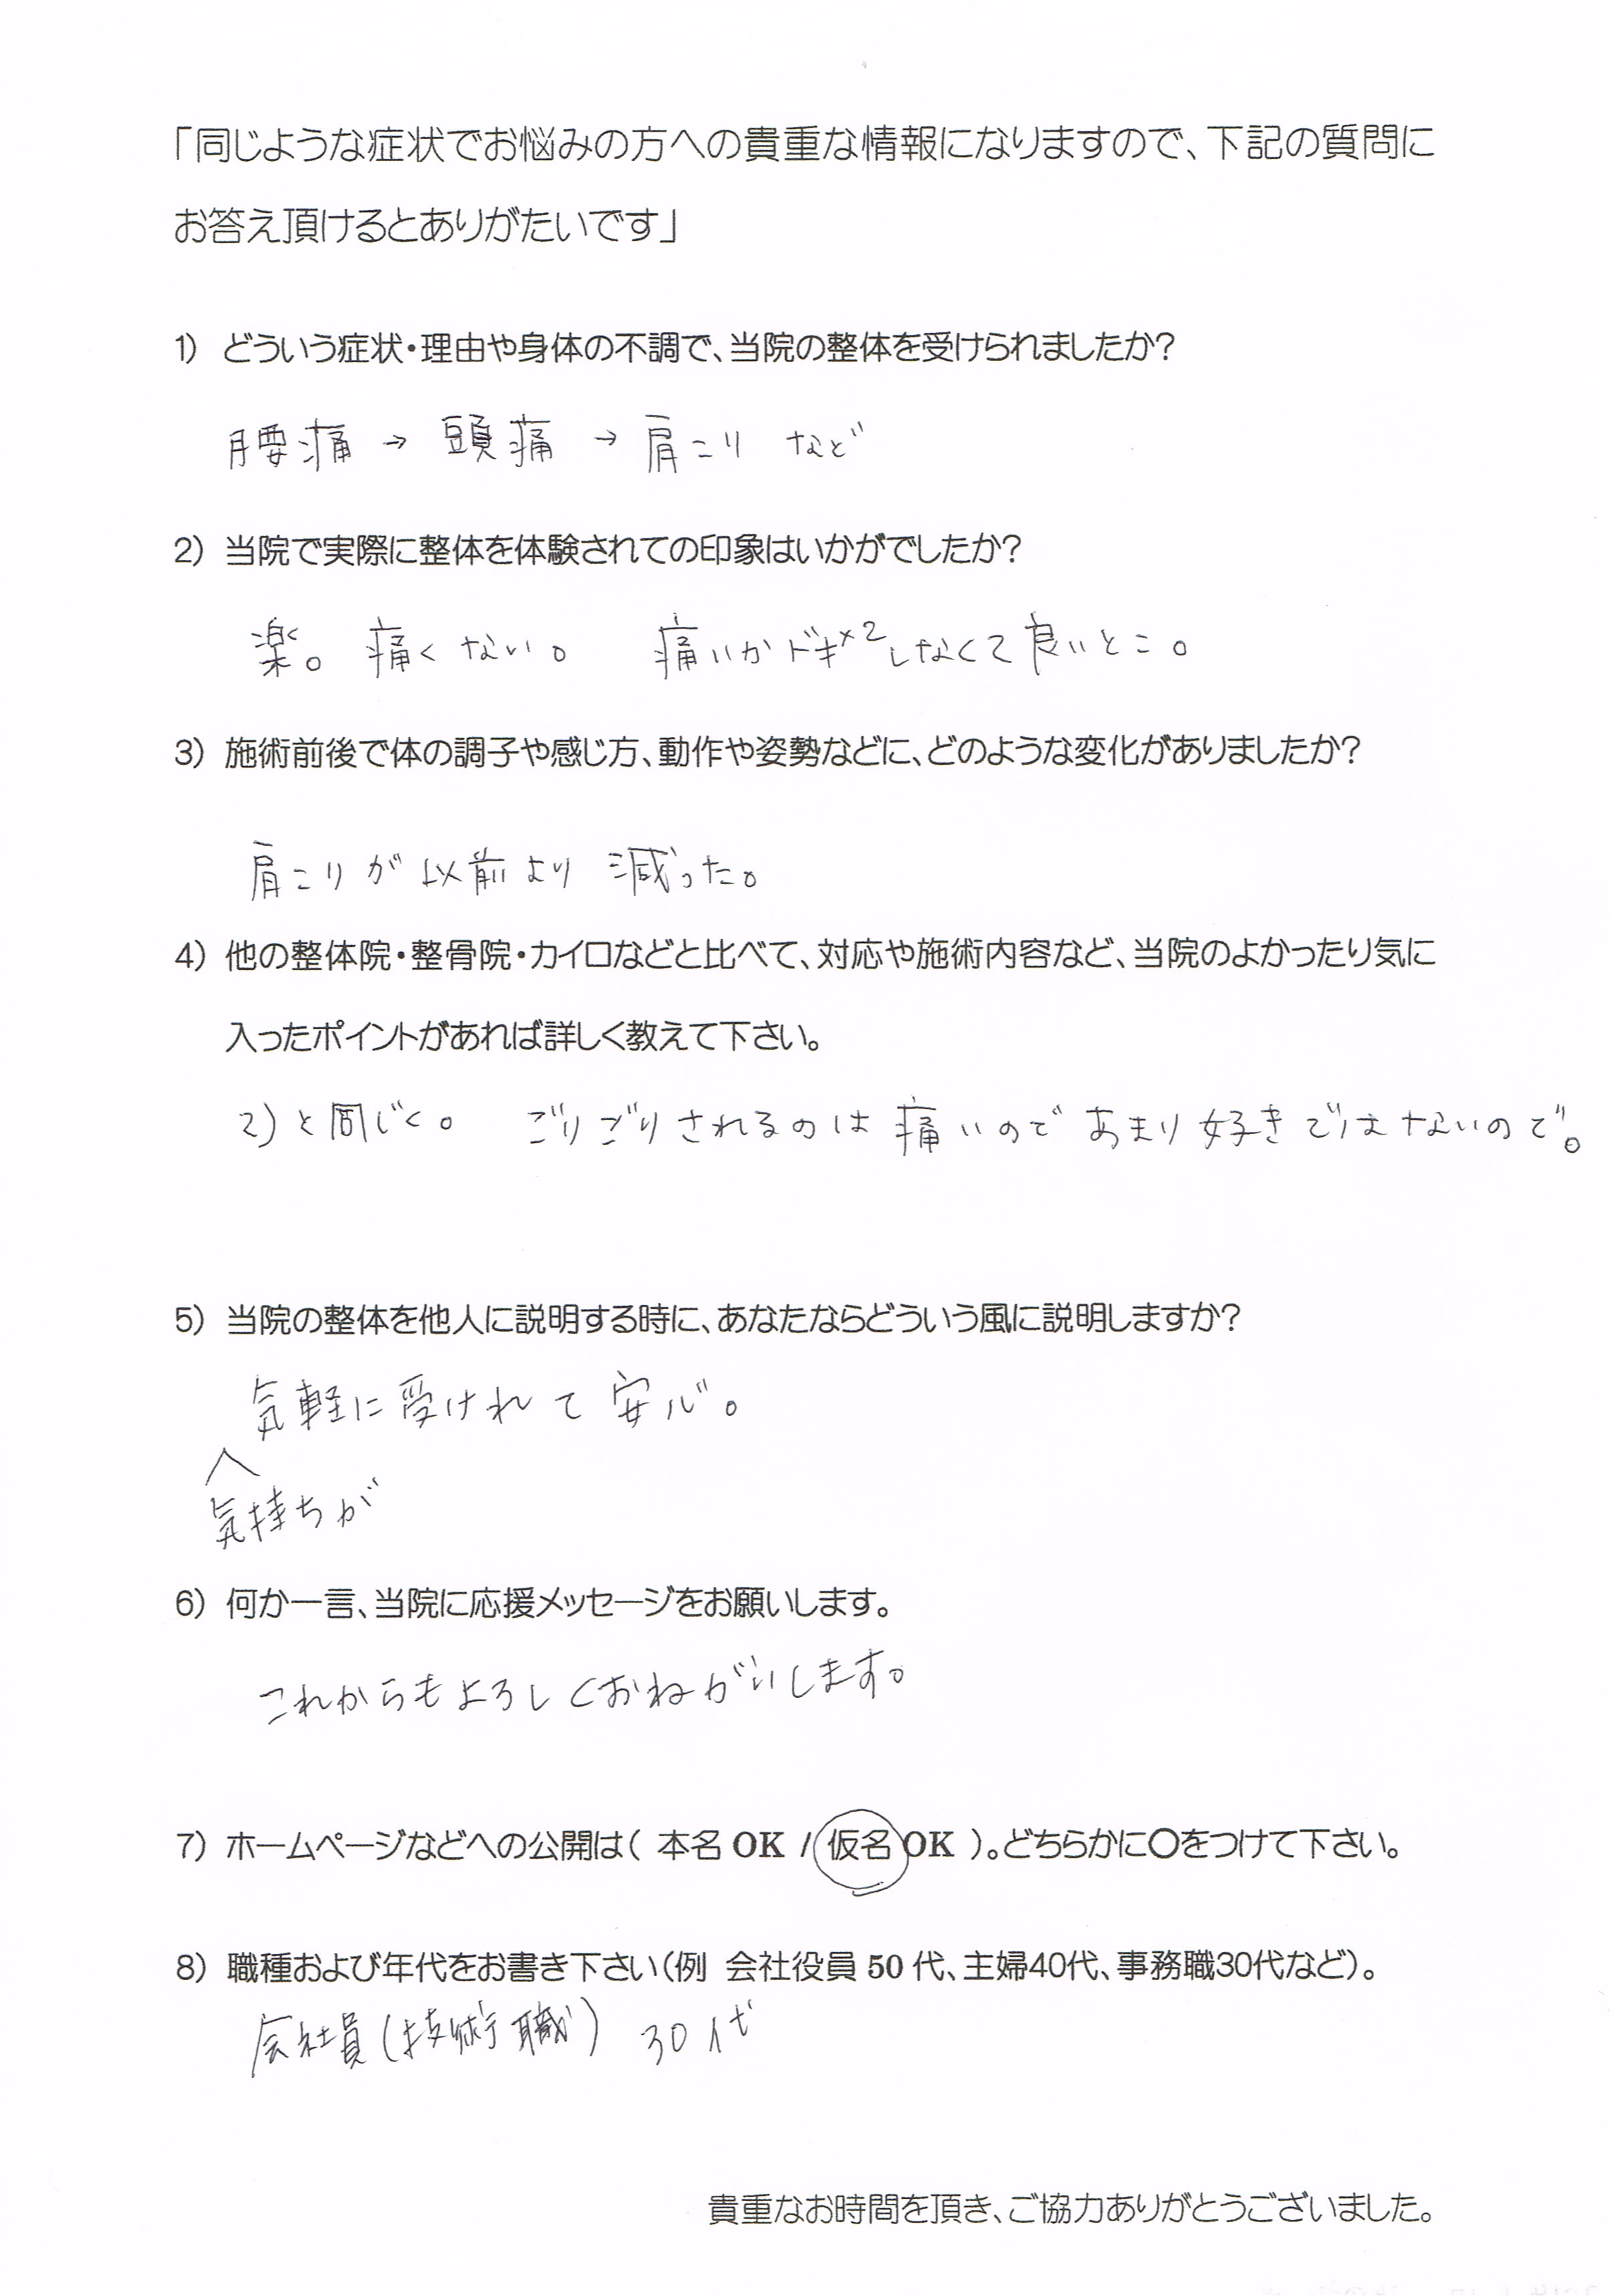 「同じような症状でお悩みの方への貴重な情報になりますので、下記の質問に
お答え頂けるとありがたいです」
1) どういう症状・理由や身体の不調で、当院の整体を受けられましたか?
腰痛 → 頭痛 → 肩こり など
2) 当院で実際に整体を体験されての印象はいかがでしたか?
楽。 痛くない。 痛いかドキ×2しなくて良いとこ。
3) 施術前後で体の調子や感じ方、動作や姿勢などに、どのような変化がありましたか?
肩こりが以前より 減った。
4) 他の整体院・整骨院・カイロなどと比べて、対応や施術内容など、当院のよかったり気に
入ったポイントがあれば詳しく教えて下さい。
2)と同じく。 ごりごりされるのは痛いのであまり好きではないので。
5) 当院の整体を他人に説明する時に、あなたならどういう風に説明しますか?
気軽に受けれて安心。
気持ちが
6) 何か一言、当院に応援メッセージをお願いします。
これからもよろしくおねがいします。
7) ホームページなどへの公開は( 本名 OK / 仮名 OK )。どちらかに○をつけて下さい。
8) 職種および年代をお書き下さい(例 会社役員 50 代、主婦40代、事務職30代など)。
会社員(技術職) 30代
貴重なお時間を頂き、ご協力ありがとうございました。